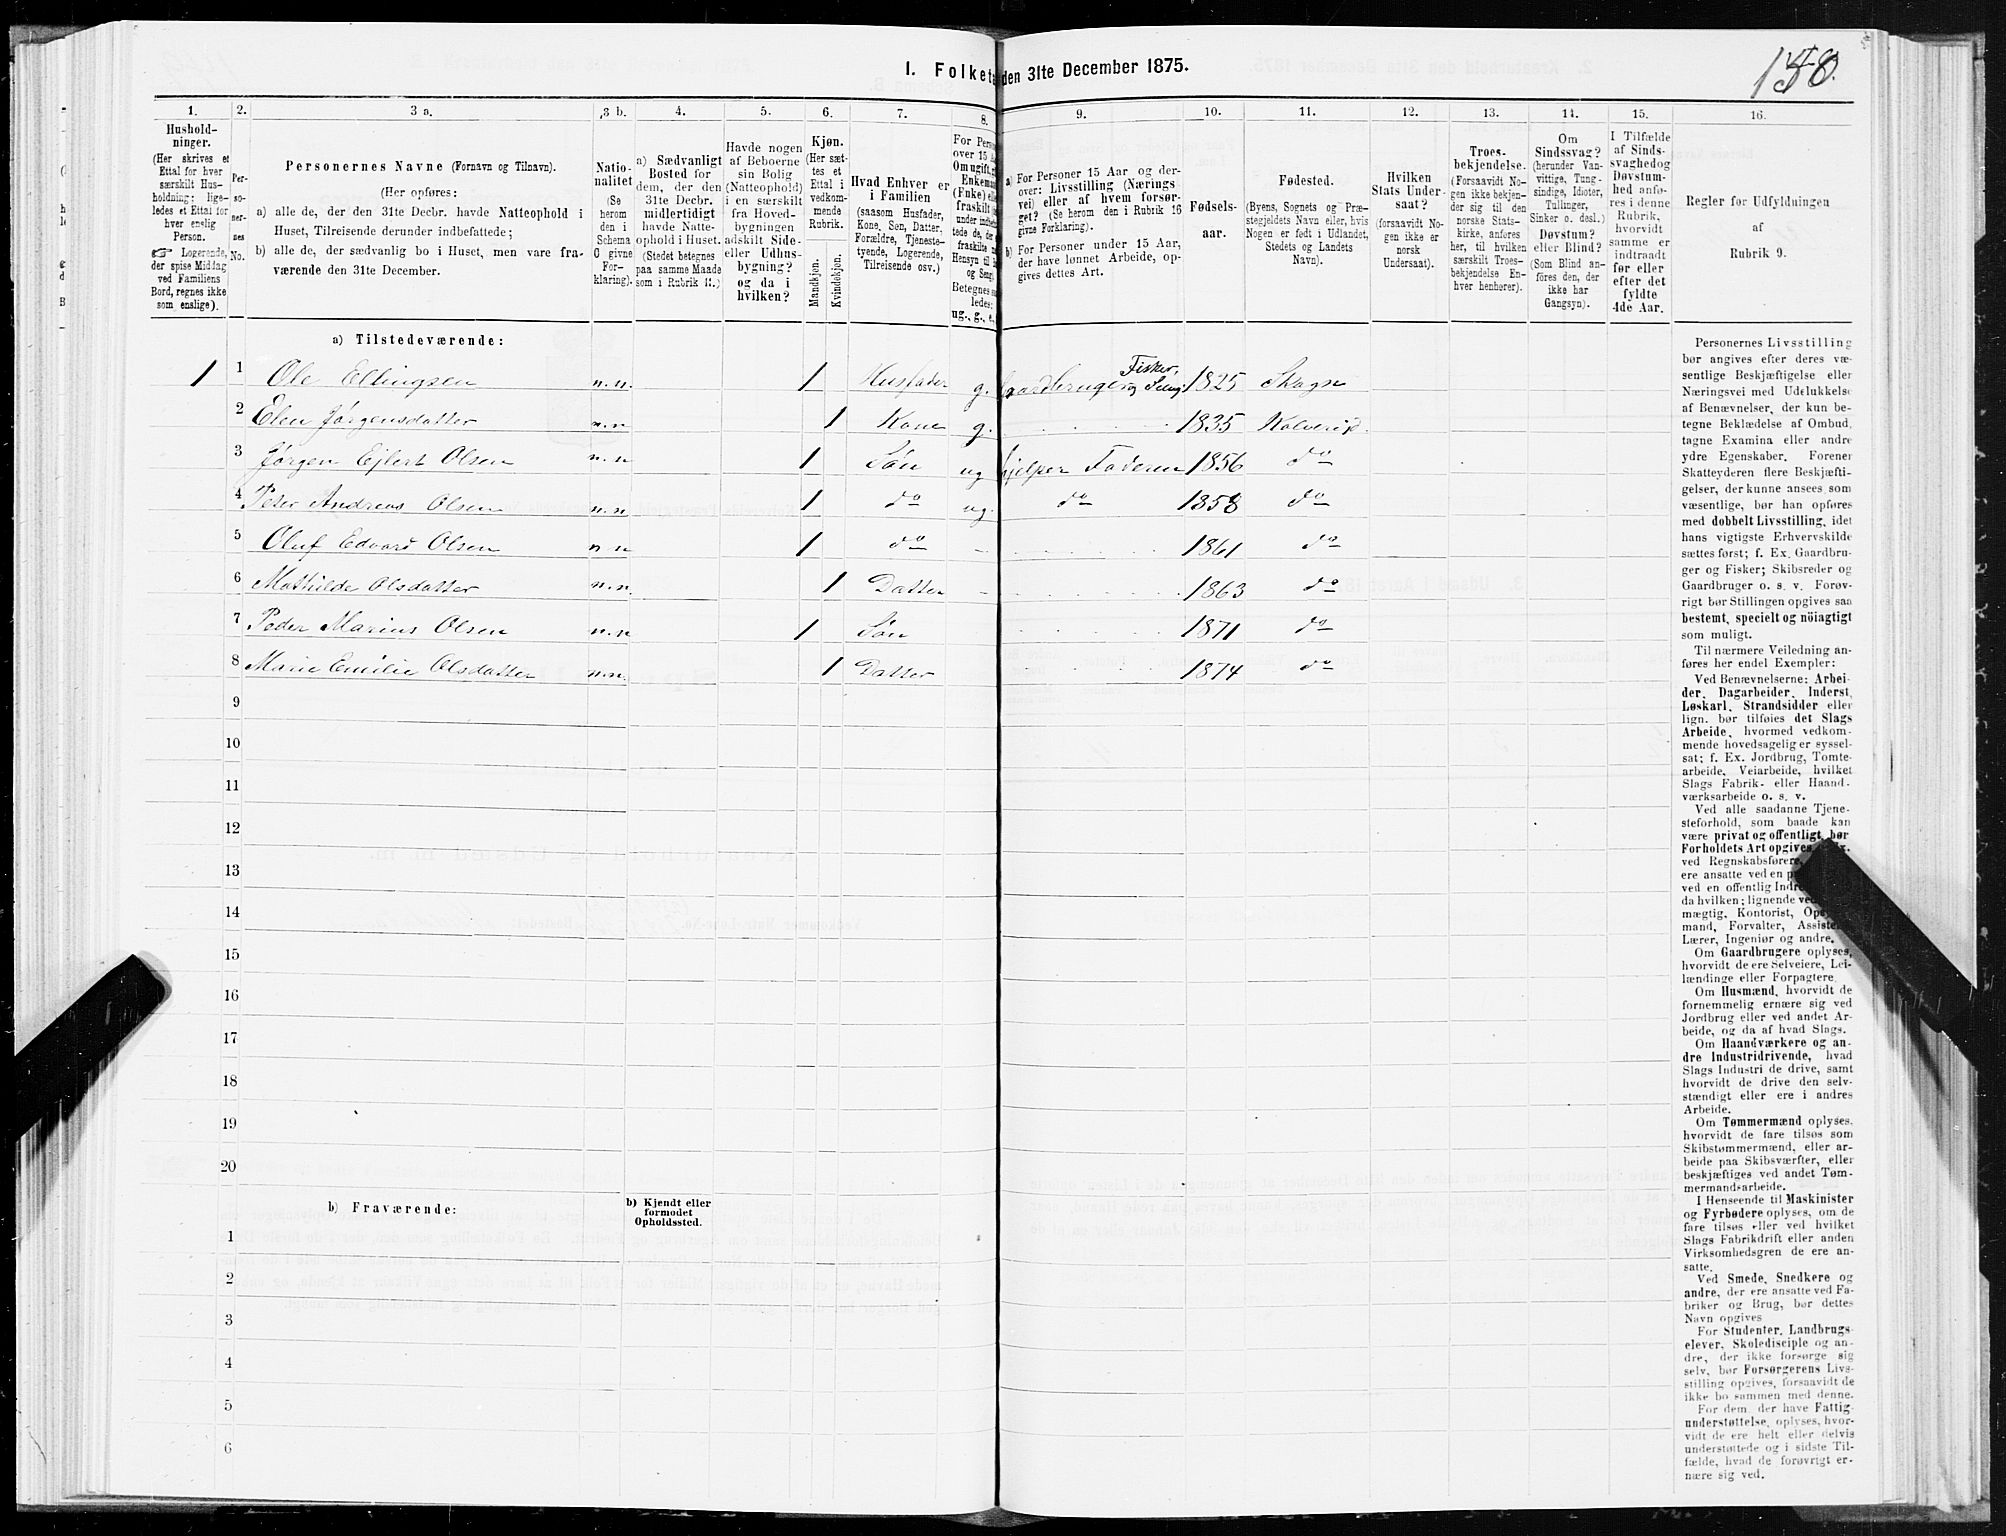 158.
I. Folket den 31te December 1875.
1. 2. 3 a. 3 b. 4. 5. 6. 7. 8. 9. 10. 11. 12. 13. 14. 15. 16.
Hushold-
ninger.
(Her skrives et
Ettal for hver
særskilt Hus-
holdning; lige-
ledes et Ettal for
hver enslig
Person.
☞ Logerende,
der spise Middag
ved Familiens
Bord, regnes ikke
som enslige).
Per-
so-
ner-
nes
No.
Personernes Navne (Fornavn og Tilnavn).
(Her opføres:
a) alle de, der den 31te Decbr. havde Natteophold i
Huset, Tilreisende derunder indbefattede;
b) alle de, der sædvanlig bo i Huset, men vare fra-
værende den 31te December.
Natio-
nalitet
(Se
herom
den i
Schema
C givne
For-
klaring).
a) Sædvanligt
Bosted for
dem, der den
31te Decbr.
midlertidigt
havde Natte-
ophold i Huset.
(Stedet betegnes
paa samme Maade
som i Rubrik 11.)
Havde nogen
af Beboerne
sin Bolig
(Natteophold)
i en særskilt
fra Hoved-
bygningen
adskilt Side-
eller Udhus-
bygning?
og da i
hvilken?
Kjøn.
(Her sæt-
tes et
Ettal i
vedkom-
mende
Rubrik.
Mandkjøn.
Kvindekjøn.
Hvad Enhver er
i Familien
(saasom Husfader,
Kone, Søn, Datter,
Forældre, Tjeneste-
tyende, Logerende,
Tilreisende osv.)
For Pers
over 15 A
Om ugift, g
Enkeman
(Enke) el
fraskilt
under indbe
tede de, der
fraskilte
Hensyn til
og Seng
Betegnes sa
ledes:
ug., g., e.,
a) For Personer 15 Aar og der-
over: Livsstilling (Nærings-
vei) eller af hvem forsør-
get? (Se herom den i Rubrik 16
givne Forklaring).
b) For Personer under 15 Aar,
der have lønnet Arbeide, op-
gives dettes Art.
Fødsels-
aar.
Fødested.
(Byens, Sognets og Præ-
stegjeldets Navn eller, hvis
Nogen er født i Udlandet,
Stedets og Landets
Navn).
Hvilken
Stats Under-
saat?
(forsaavidt No-
gen ikke er
norsk
Undersaat).
Troes-
bekjendelse.
(Forsaavidt No-
gen ikke bekjen-
der sig til den
norske Stats-
kirke, anføres
her, til hvilken
særskilt Troes-
bekjendelse En-
hver henhører).
Om
Sindssvag?
(herunder Van-
vittige, Tung-
sindige, Idioter,
Tullinger,
Sinker o. desl.)
Døvstum?
eller Blind?
(Som Blind an-
føres den, der
ikke har
Gangsyn).
I Tilfælde
af Sinds-
svaghed og
Døvstum-
hed anfø-
res i denne
Rubrik,
hvorvidt
samme er
indtraadt
før eller
efter det
fyldte
4de Aar.
Regler for Udfyldningen
af
Rubrik 9.
a) Tilstedeværende:
1 1 Ole Ellingsen n.n. 1 Husfader g. Gaardbruger Fisker, og Selvej. 1825 Skagn
2 Elen Jørgensdatter n.n 1 Kone g. 1835 Kolvereid.
3 Jørgen Ejlert Olsen n.n 1 Søn ug hjelper Faderen 1856 do
4 Peter Andreas Olsen n.n 1 do ug. do 1858 do
5 Oluf Edvard Olsen n n 1 do - 1861 do
6 Mathilde Olsdatter n.n. 1 Datter - 1863 do
7 Peder Marius Olsen n.n 1 Søn 1871 do
8 Marie Emilie Olsdatter n.n. 1 Datter 1874 do
9
10
11
12
13
14
15
16
17
18
19
20
b) Fraværende:
b) Kjendt eller
formodet
Opholdssted.
1
2
3
4
5
6
Personernes Livsstilling
bør angives efter deres væ-
sentlige Beskjæftigelse eller
Næringsvei med Udelukkelse
af Benævnelser, der kun be-
tegne Beklædelse af Ombud,
tagne Examina eller andre
ydre Egenskaber. Forener
Skatteyderen flere Beskjæfti-
gelser, der kunne ansees som
væsentlige, bør han opføres
med dobbelt Livsstilling, idet
hans vigtigste Erhvervskilde
sættes først; f. Ex. Gaardbru-
ger og Fisker; Skibsreder og
Gaardbruger o. s. v. Forøv-
rigt bør Stillingen opgives saa
bestemt, specielt og nöiagtigt
som muligt.
Til nærmere Veiledning an-
føres her endel Exempler:
Ved Benævnelserne: Arbei-
der, Dagarbeider, Inderst,
Løskarl, Strandsidder eller
lign. bør tilføies det Slags
Arbeide, hvormed vedkom-
mende hovedsagelig er syssel-
sat; f. Ex. Jordbrug, Tomte-
arbeide, Veiarbeide, hvilket
Slags Fabrik- eller Haand-
værksarbeide o. s. v.
Ved alle saadanne Tjene-
steforhold, som baade kan
være privat og offentligt, bør
Forholdets Art opgives,
ved Regnskabsførere,
ere ansatte ved en p
ved en offentlig Indr
da hvilken; lignende ved
mægtig, Kontorist, Ops
mand, Forvalter, Assistent
Lærer, Ingeniør og andre.
Om Gaardbrugere oplyses,
hvorvidt de ere Selveiere, Lei-
lændinge eller Forpagtere.
Om Husmænd, hvorvidt de
fornemmelig ernære sig ved
Jordbrug eller ved andet Ar-
beide, og da af hvad Slags.
Om Haandværkere og an-
dre Industridrivende, hvad
Slags Industri de drive, samt
hvorvidt de drive den selv-
stændigt eller ere i andres
Arbeide.
Om Tømmermænd oplyses,
hvorvidt de fare tilsøs som
Skibstømmermænd, eller ar-
beide paa Skibsværfter, eller
beskjæftiges ved andet Tøm-
mermandsarbeide.
I Henseende til Maskinister
og Fyrbødere oplyses, om de
fare tilsøs eller ved hvilket
Slags Fabrikdrift eller anden
Virksomhedsgren de ere an-
satte.
Ved Smede, Snedkere og
andre, der ere ansatte ved Fa-
briker og Brug, bør dettes
Navn opgives
For Studenter, Landbrugs-
elever, Skoledisciple og an-
dre, der ikke forsørge sig
selv, bør Forsørgerens Livs-
stilling opgives, forsaavidt de
ikke bo sammen med denne.
For dem, der have Fattig-
understøttelse, oplyses, hvor-
vidt de ere helt eller delvis
understøttede og i sidste Til-
fælde, hvad de forøvrigt er-
nære sig ved.